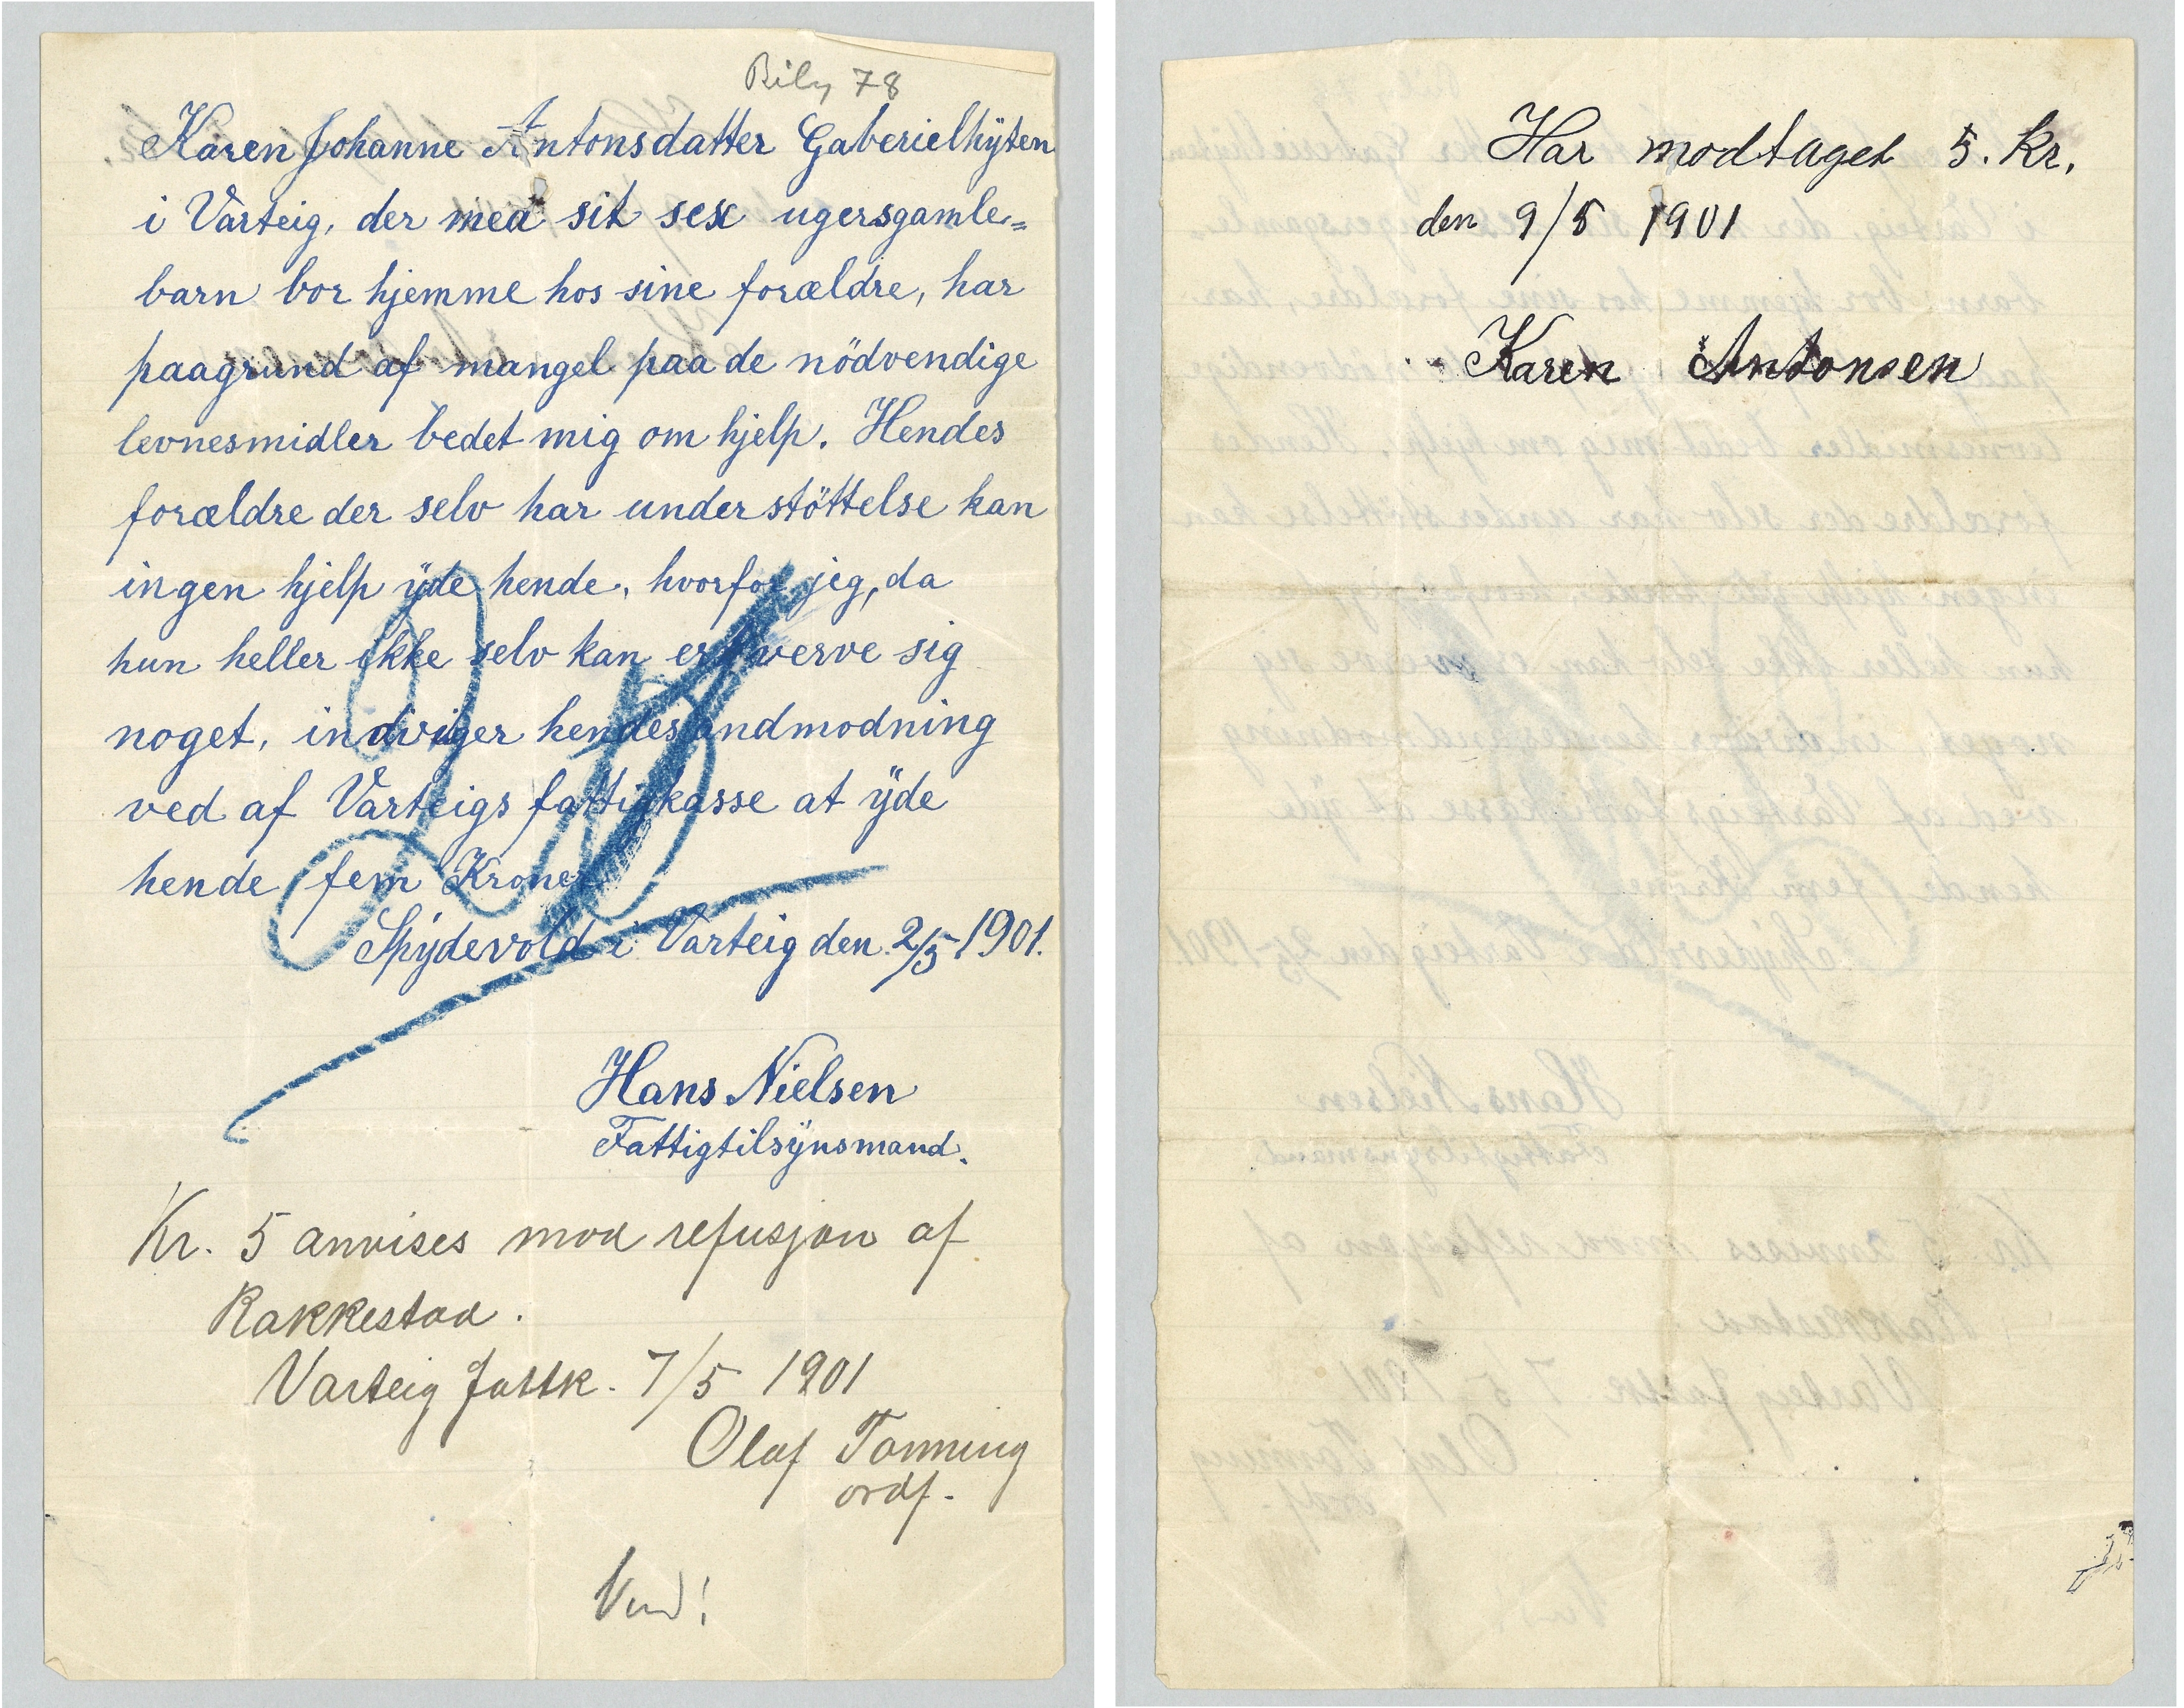 Bilag 78
Karen Johanne Antonsdatter Gaberielhÿten
i Varteig, der med sit sex ugersgamle=
barn bor hjemme hos sine forældre, har
paagrund af mangel paa de nödvendige
levnesmidler bedet mig om hjelp. Hendes
forældre der selv har understöttelse kan
ingen hjelp ÿde hende, hvorfor jeg, da
hun heller ikke selv kan erhverve sig
noget, indviger hendes andmodning
ved af Varteigs fattigkasse at ÿde
hende fem Kroner
Spÿdevold i Varteig den 2/5 1901.
Hans Nielsen
Fattigtilsÿnsmand.
Kr. 5 anvises mod refusjon af
Rakkestad.
Varteig fattk. 7/5 1901
Olaf Tonning
ordf.
Vend!
Har modtaget 5. Kr.
den 9/5 1901
Karen Antonsen